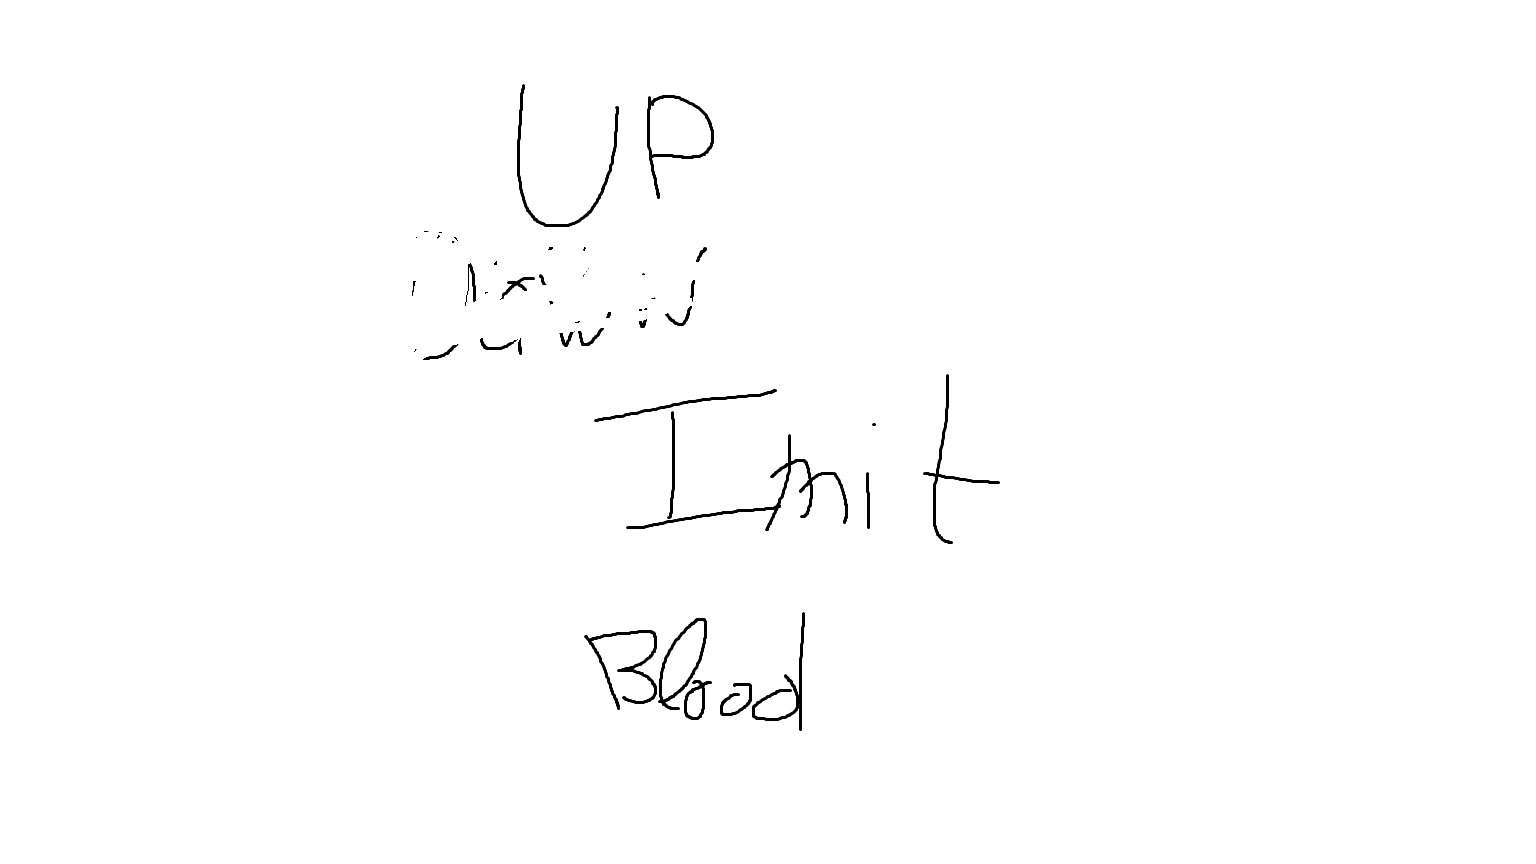 UP
Imit
Blood